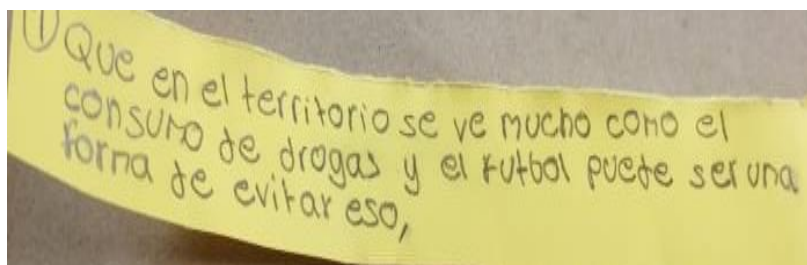 ① Que en el territorio se ve mucho como el
consumo de drogas y el futbol puede ser una
forma de evitar eso,